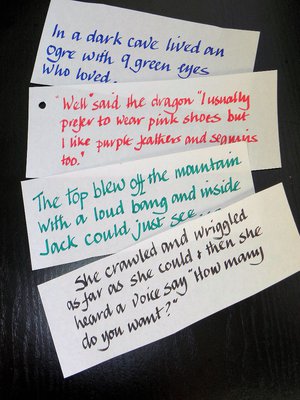 In a dark cave lived an
Ogre with 9 green eyes
Who loved..
"Well" said the dragon "I usually
prefer to wear pink shoes but
I like purple feathers and sequins
too."
The top blew off the mountain
with a loud bang and inside
Jack could just see....
She crawled and wriggled
as far as she could & then she
heard a voice say "How many
do you want?"